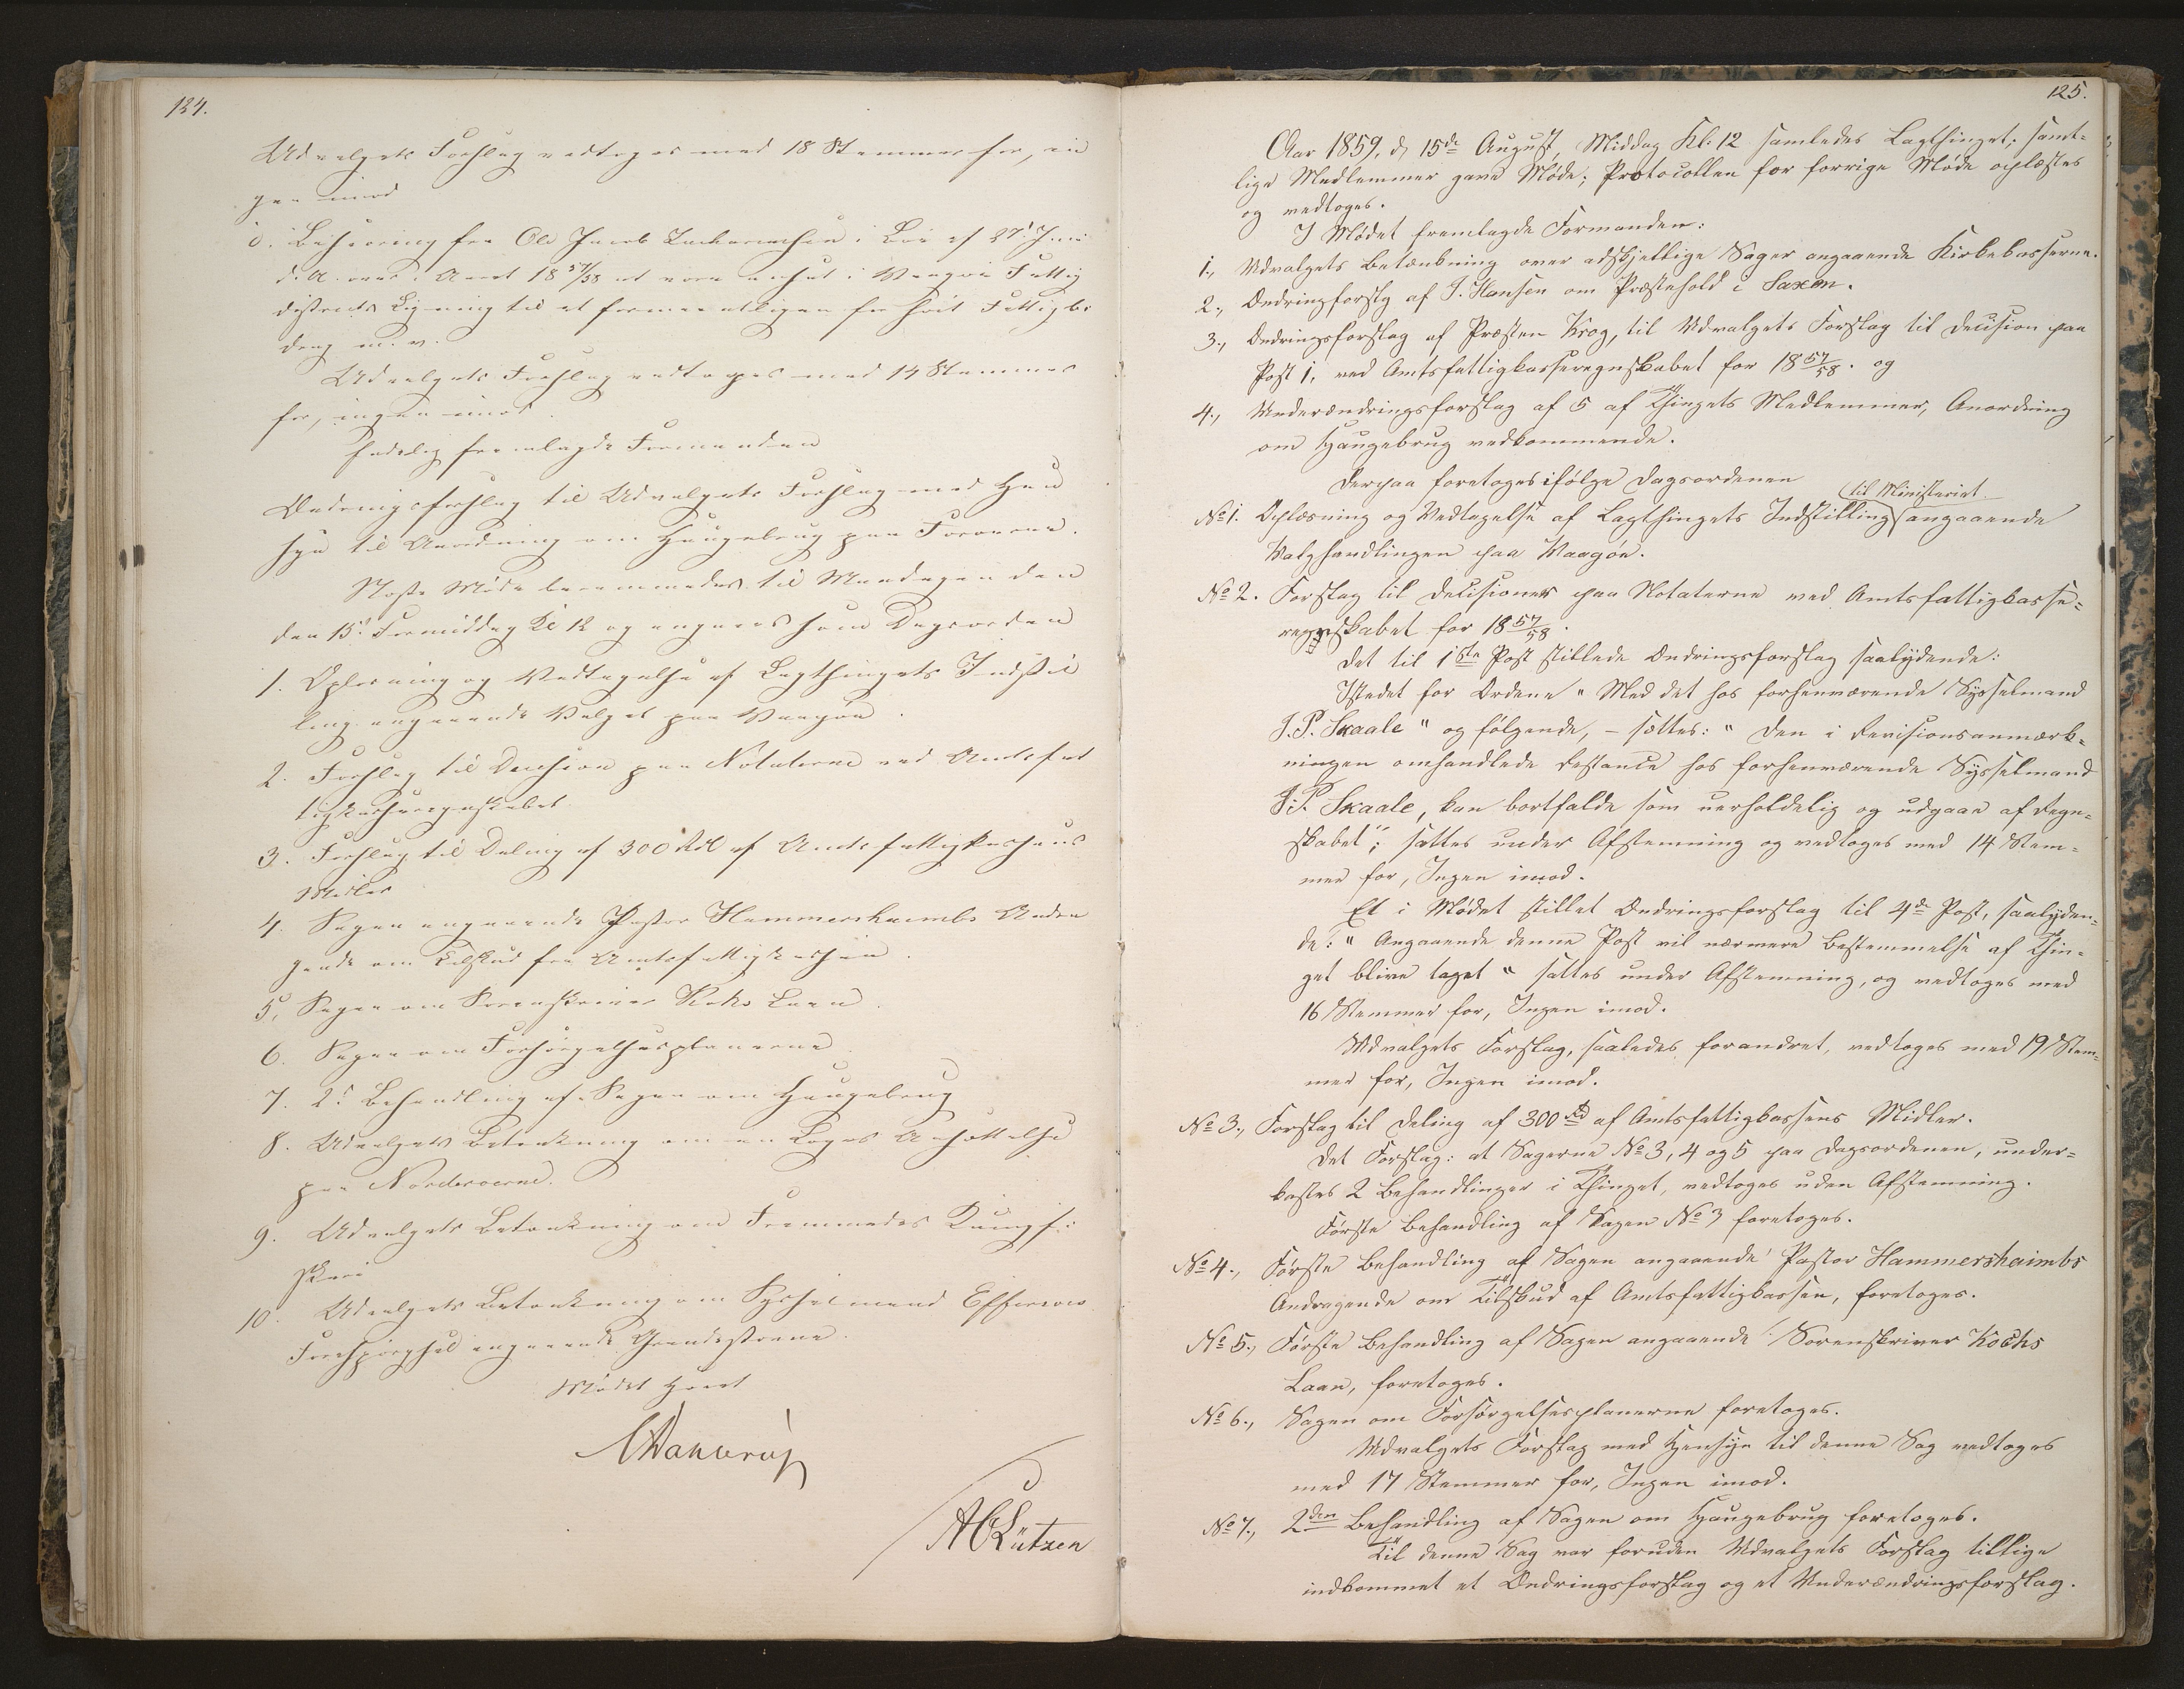 124.
Udvalgets Forslag vedtoges med 18 Stemmer for, in
gen imod
d. Besværing fra Ole Jacob Zachariasen i Böe af 27d Juni
d. A. over i Aaret 1857/58 at være ansat i Vaagöe Fattig
districts Ligning til et formeentligen for höit Fattigbi
drag m. v.
Udvalgets Forslag vedtoges med 14 Stemmer
for, ingen imod.
Endelig fremlagde Formanden
Ændringsforslag til Udvalgets Forslag med Hen
syn til Anordning om Haugebrug paa Færøerne.
Næste Möde berammedes til Mandagen den
den 15d Formiddag Kl 12 og angaves som Dagsorden
1. Oplæsning og Vedtagelse af Lagthingets Indstil
ling angaaende Valget paa Vaagöe.
2. Forslag til Decision paa Notaterne ved Amtsfat
tigkasseregnskabet
3. Forslag til Deling af 300 Rdl af Amtsfattigkassens
Midler
4. Sagen angaaende Pastor Hammershaimbs Andra
gende om Tilskud fra Amtsfattigkassen.
5, Sagen om Sorenskriver Kochs Laan.
6. Sagen om Forsörgelsesplanerne
7. 2d Behandling af Sagen om Haugebrug
8. Udvalgets Betænkning om en Læges Ansættelse
paa Norderøerne.
9. Udvalgets Betænkning om Fremmedes
10. Udvalgets Betænkning om Sysselmand Effersøes
Forespörgsel angaaende Grindestævne.
Mödet hævet
CDahlerup
HCLützen
125.
Aar 1859, d, 15de August, Middag Kl. 12 samledes Lagthinget; samt-
lige Medlemmer gave Møde; Protocollen for forrige Møde oplæstes
og vedtoges.
I Mødet fremlagde Formanden:
1., Udvalgets Betænkning over adskjellige Sager angaaende Kirkekasserne.
2., Ændringsforslg af J. Hansen om Præstehold i Saxen.
3., Ændringsforslag af Præsten Krog, til Udvalgets Forslag til Decision paa
Post 1, ved Amtsfattigkasseregnskabet for 1857/58. og
4., Underændringsforslag af 5 af Thingets Medlemmer, Anordning
om Haugebrug vedkommende.
Derpaa foretoges ifølge Dagsordenen
til Ministeriet
No 1. Oplæsning og Vedtagelse af Lagthingets Indstilling angaaende
Valghandlingen paa Waagöe.
No 2. Forslag til Decisioner paa Notaterne ved Amtsfattigkasse-
regnskabet for 1857/58.
Det til 1ste Post stillede Ændringsforslag saalydende:
Istedet for Ordene "Med det hos forhenværende Sysselmand
J. P. Skaale" og følgende, – sættes: "Den i Revisionsanmærk-
ningen omhandlede Restance hos forhenværende Sysselmand
J. P. Skaale, kan bortfalde som uerholdelig og udgaae af Regn-
skabet"; sattes under Afstemning og vedtoges med 14 Stem-
mer for, Ingen imod.
Et i Mødet stillet Ændringsforslag til 4de Post, saalyden-
de: "Angaaende denne Post vil nærmere Bestemmelse af Thin-
get blive taget" sattes under Afstemning, og vedtoges med
16 Stemmer for, Ingen imod.
Udvalgets Forslag, saaledes forandret, vedtoges med 19 Stem-
mer for, Ingen imod.
No 3., Forslag til Deling af 300 Rd af Amtsfattigkassens Midler.
Det Forslag: at Sagerne No 3, 4 og 5 paa Dagsordenen, under-
kastes 2 Behandlinger i Thinget, vedtoges uden Afstemning.
Første Behandling af Sagen No 3 foretoges.
No 4., Første Behandling af Sagen angaaende Pastor Hammershaimbs
Andragende om Tilskud af Amtsfattigkassen, foretoges.
No 5., Første Behandling af Sagen angaaende Sorenskriver Kochs
Laan, foretoges.
No 6., Sagen om Forsörgelsesplanerne foretoges.
Udvalgets Forslag med Hensyn til denne Sag vedtoges
med 17 Stemmer for, Ingen imod.
No 7., 2den Behandling af Sagen om Haugebrug foretoges.
Til denne Sag var foruden Udvalgets Forslag tillige
indkommet et Ændringsforslag og et Underændringsforslag.